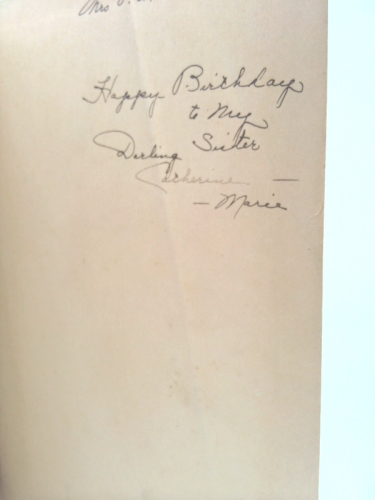 Mrs
Happy Birthday
to My
Darling Sister
Catherine —
— Marie